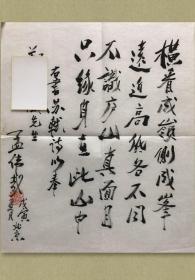 横看成岭侧成峯
远近高低各不同
不识庐山真面目
只缘身在此山中
右书苏轼诗以奉
先生
孟伟哉